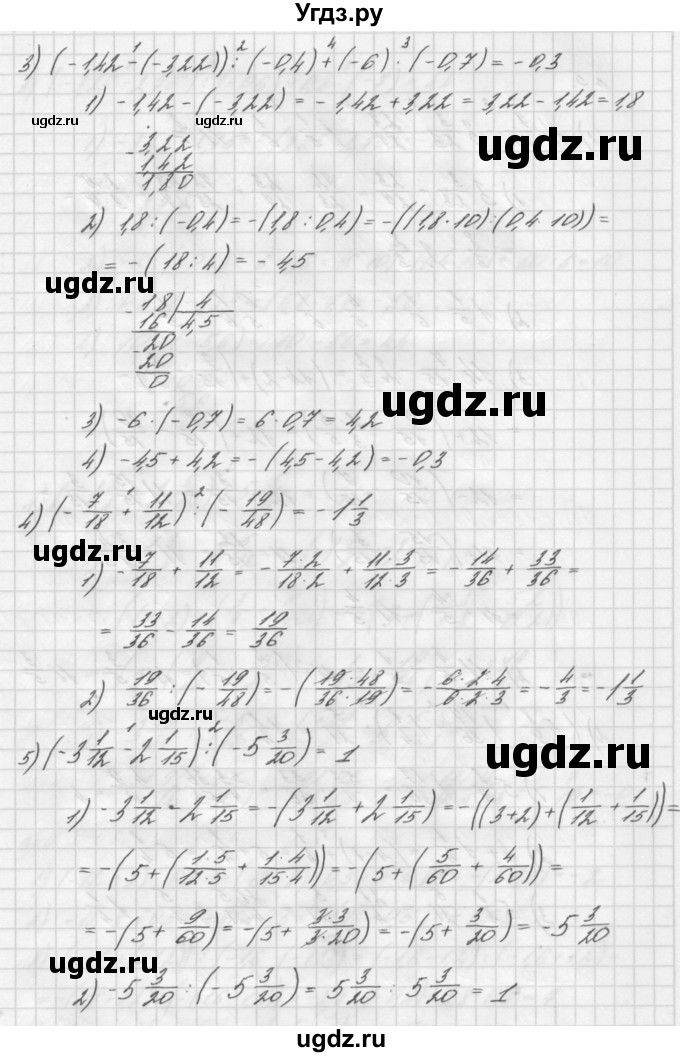 Угдз.ру
3) (-1,42-(-3,22)):(-0,4)+(-6)·(-0,7)=-0,3
1 2 4 3
1) -1,42-(-3,22)=-1,42+3,22=3,22-1,42=1,8
ugdz.ru ugdz.ru ugdz.ru
-3,22
1,42
1,80
2) 1,8:(-0,4)=-(1,8:0,4)=-((1,8·10):(0,4·10))=
=-(18:4)=-4,5
ugdz.ru ugdz.ru
-18 | 4
16 | 4,5
-20
20
0
ugdz.ru
3) -6·(-0,7)=6·0,7=4,2
4) -4,5+4,2=-(4,5-4,2)=-0,3
4) (-7/18+11/12):(-19/48)=-1 1/3
1 2
ugdz.ru
1) -7/18+11/12=-7·2/18·2+11·3/12·3=-14/36+33/36=
=33/36-14/36=19/36
2) 19/36:(-19/48)=-(19·48/36·19)=-6·2·4/6·2·3=-4/3=-1 1/3
ugdz.ru
5) (-3 1/12-2 1/15):(-5 3/20)=1
1 2
ugdz.ru
1) -3 1/12-2 1/15=-(3 1/12+2 1/15)=-((3+2)+(1/12+1/15))=
=-(5+(1·5/12·5+1·4/15·4))=-(5+(5/60+4/60))=
=-(5+9/60)=-(5+3·3/3·20)=-(5+3/20)=-5 3/20
ugdz.ru ugdz.ru
2) -5 3/20:(-5 3/20)=5 3/20:5 3/20=1
ugdz.ru